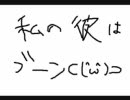 私の彼は
ブーン⊂(^ω^)⊃